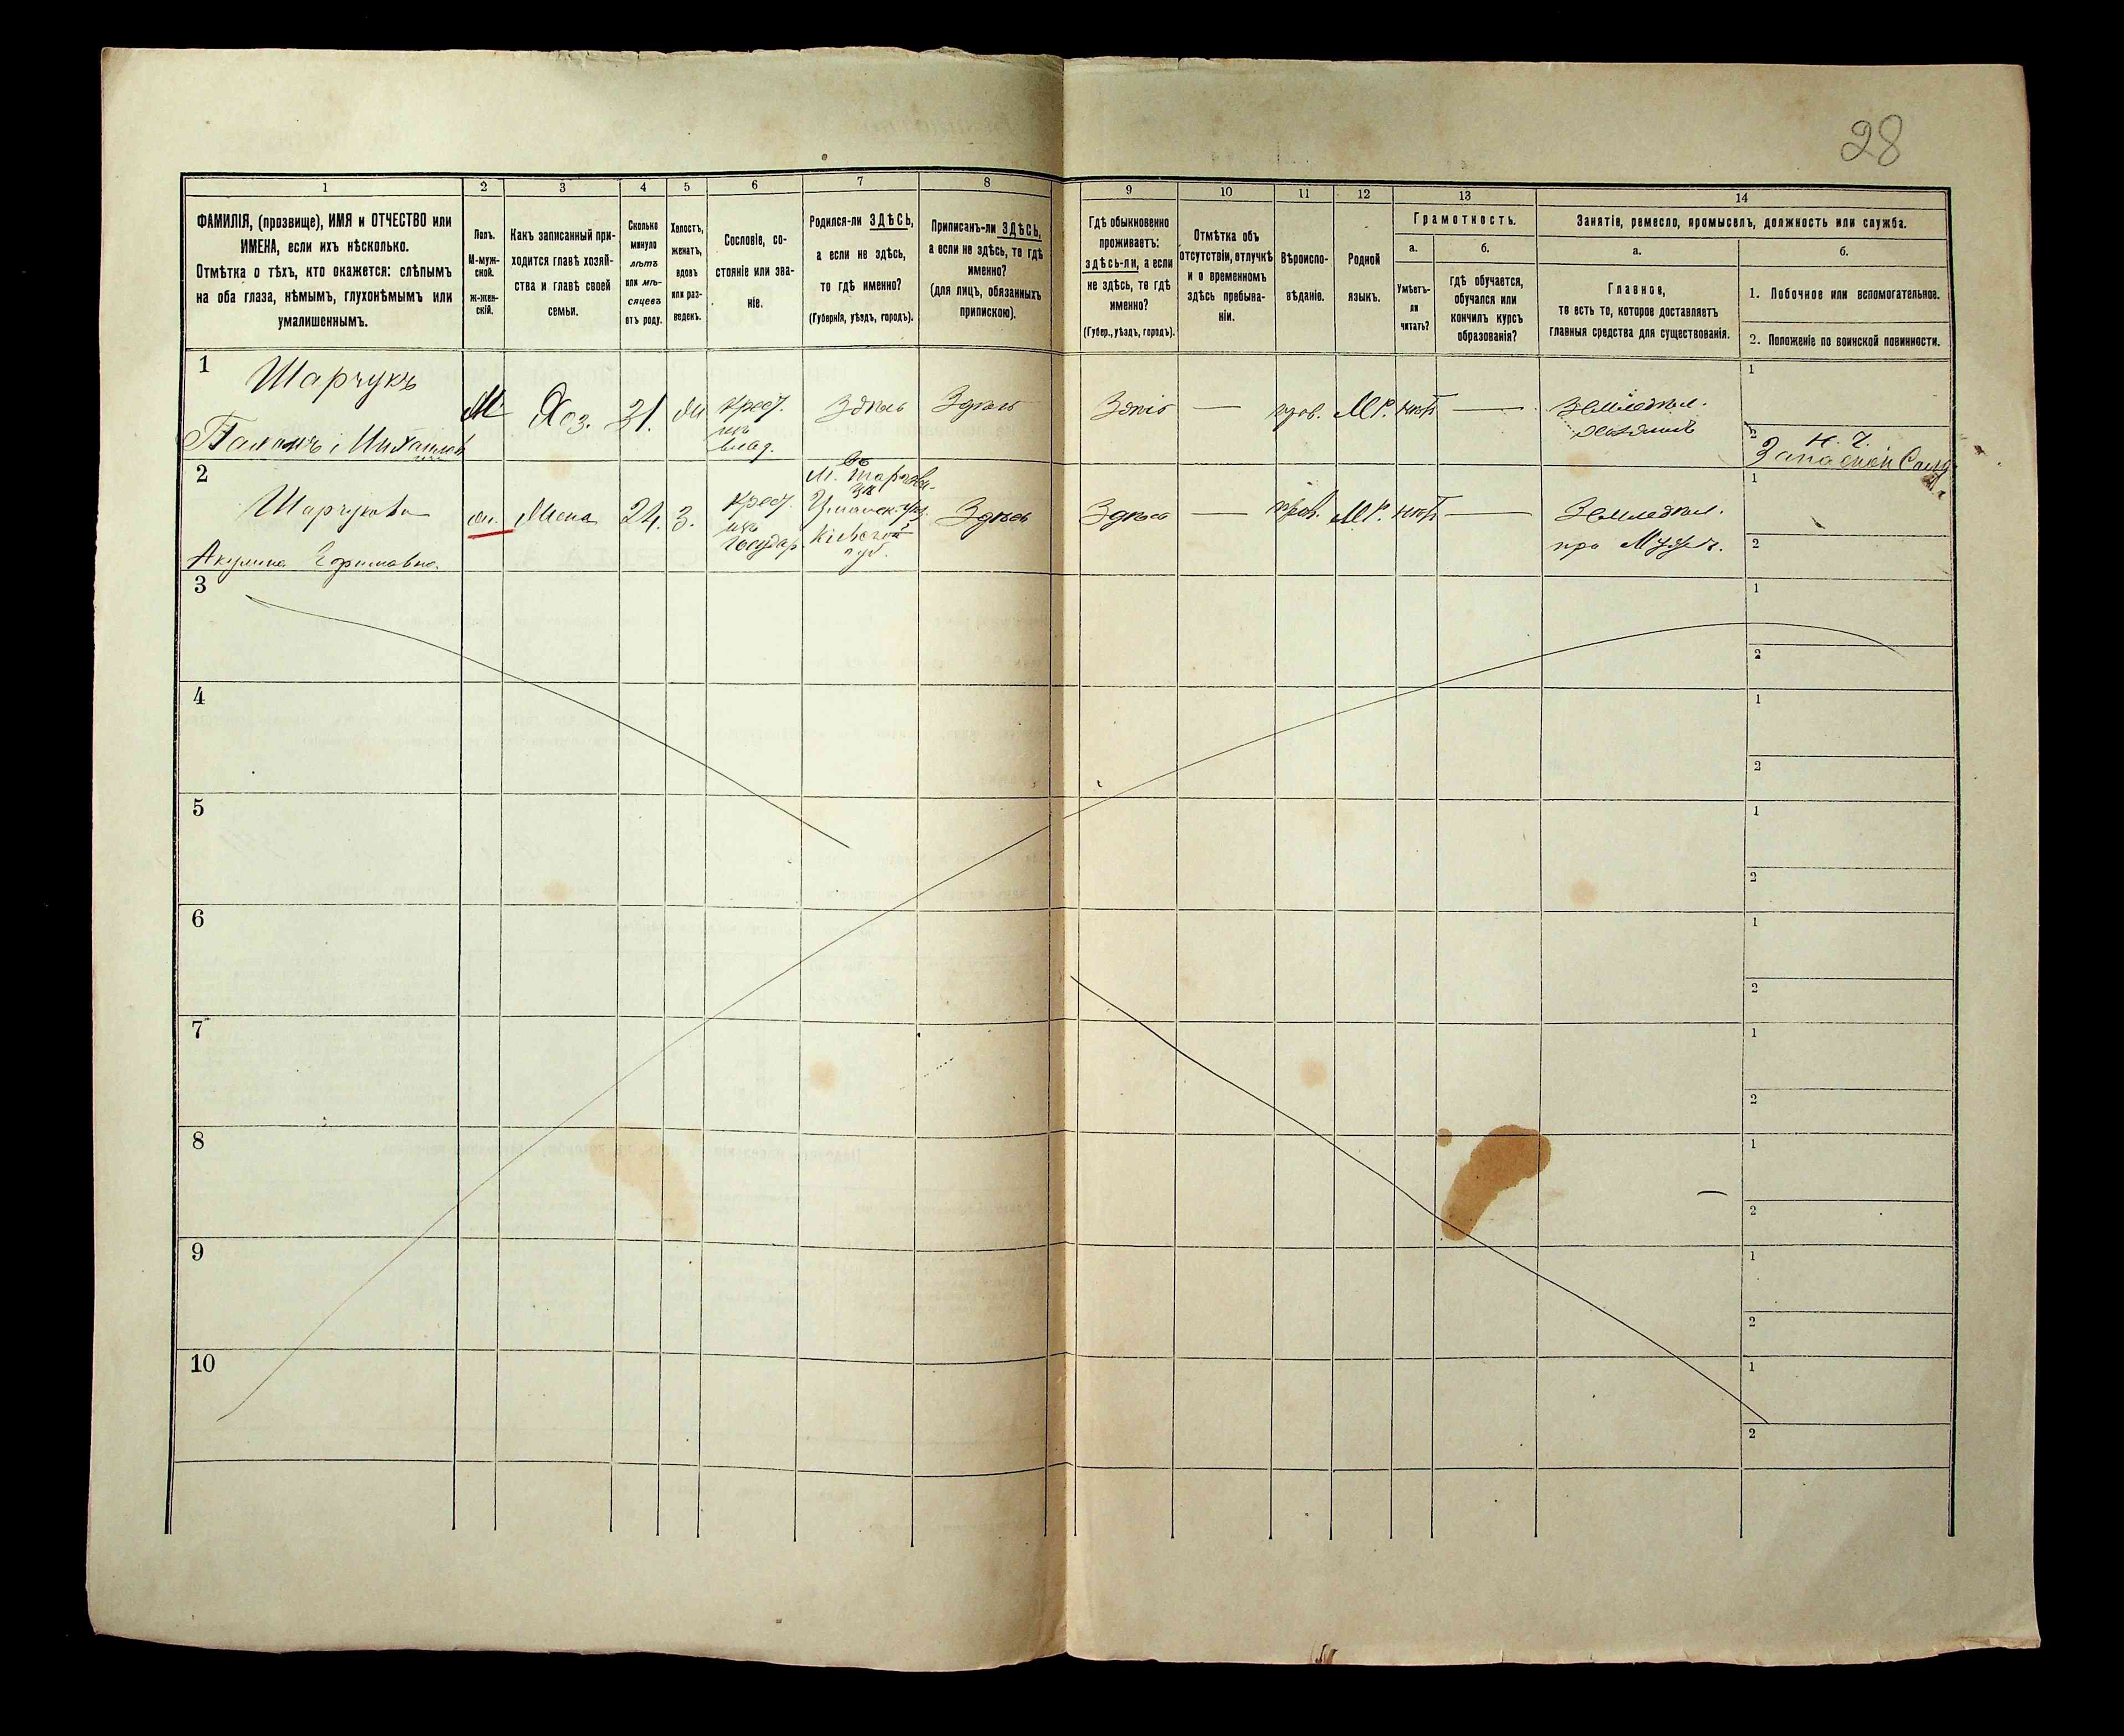 28
1 2 3 4 5 6 7 8 9 10 11 12 13 14
ФАМИЛІЯ, (прозвище), ИМЯ и ОТЧЕСТВО или
ИМЕНА, если ихъ нѣсколько.
Отмѣтка о тѣхъ, кто окажется: слѣпымъ
на оба глаза, нѣмымъ, глухонѣмымъ или
умалишеннымъ.
Полъ.
М-муж-
ской.
ж-жен-
скій.
Какъ записанный при-
ходится главѣ хозяй-
ства и главѣ своей
семьи.
Сколько
минуло
лѣтъ
или мѣ-
сяцевъ
отъ роду.
Холостъ,
женатъ,
вдовъ
или раз-
веденъ.
Сословіе, со-
стояніе или зва-
ніе.
Родился-ли ЗДѢСЬ,
а если не здѣсь,
то гдѣ именно?
(Губернія, уѣздъ, городъ).
Приписанъ-ли ЗДѢСЬ,
а если не здѣсь, то гдѣ
именно?
(для лицъ, обязанныхъ
припискою).
Гдѣ обыкновенно
проживаетъ:
здѣсь-ли, а если
не здѣсь, то гдѣ
именно?
(Губер., уѣздъ, городъ).
Отмѣтка объ
отсутствіи, отлучкѣ
и о временномъ
здѣсь пребыва-
ніи.
Вѣроиспо-
вѣданіе.
Родной
языкъ.
Грамотность.
а.
Умѣетъ-
ли
читать?
б.
гдѣ обучается,
обучался или
кончилъ курсъ
образованія?
Занятія, ремесло, промыселъ, должность или служба.
а.
Главное,
то есть то, которое доставляетъ
главныя средства для существованія.
б.
1. Побочное или вспомогательное.
2. Положеніе по воинской повинности.
1
Шарчукъ
М Хоз. 31. Крест.
изъ
влад.
Здѣсь Здѣсь Здѣсь — прав. МР. нѣтъ —
Земледѣл.
хозяинъ
1
2
2
Шарчукова
Акулина Ефимовна
ж. Жена 24. З. Крест.
изъ
государ.
Кіевской
губ.
Здѣсь Здѣсь — прав. МР. нѣтъ —
Земледѣл.
при
1
2
3
1
2
4
1
2
5
1
2
6
1
2
7
1
2
8
1
2
9
1
2
10
1
2